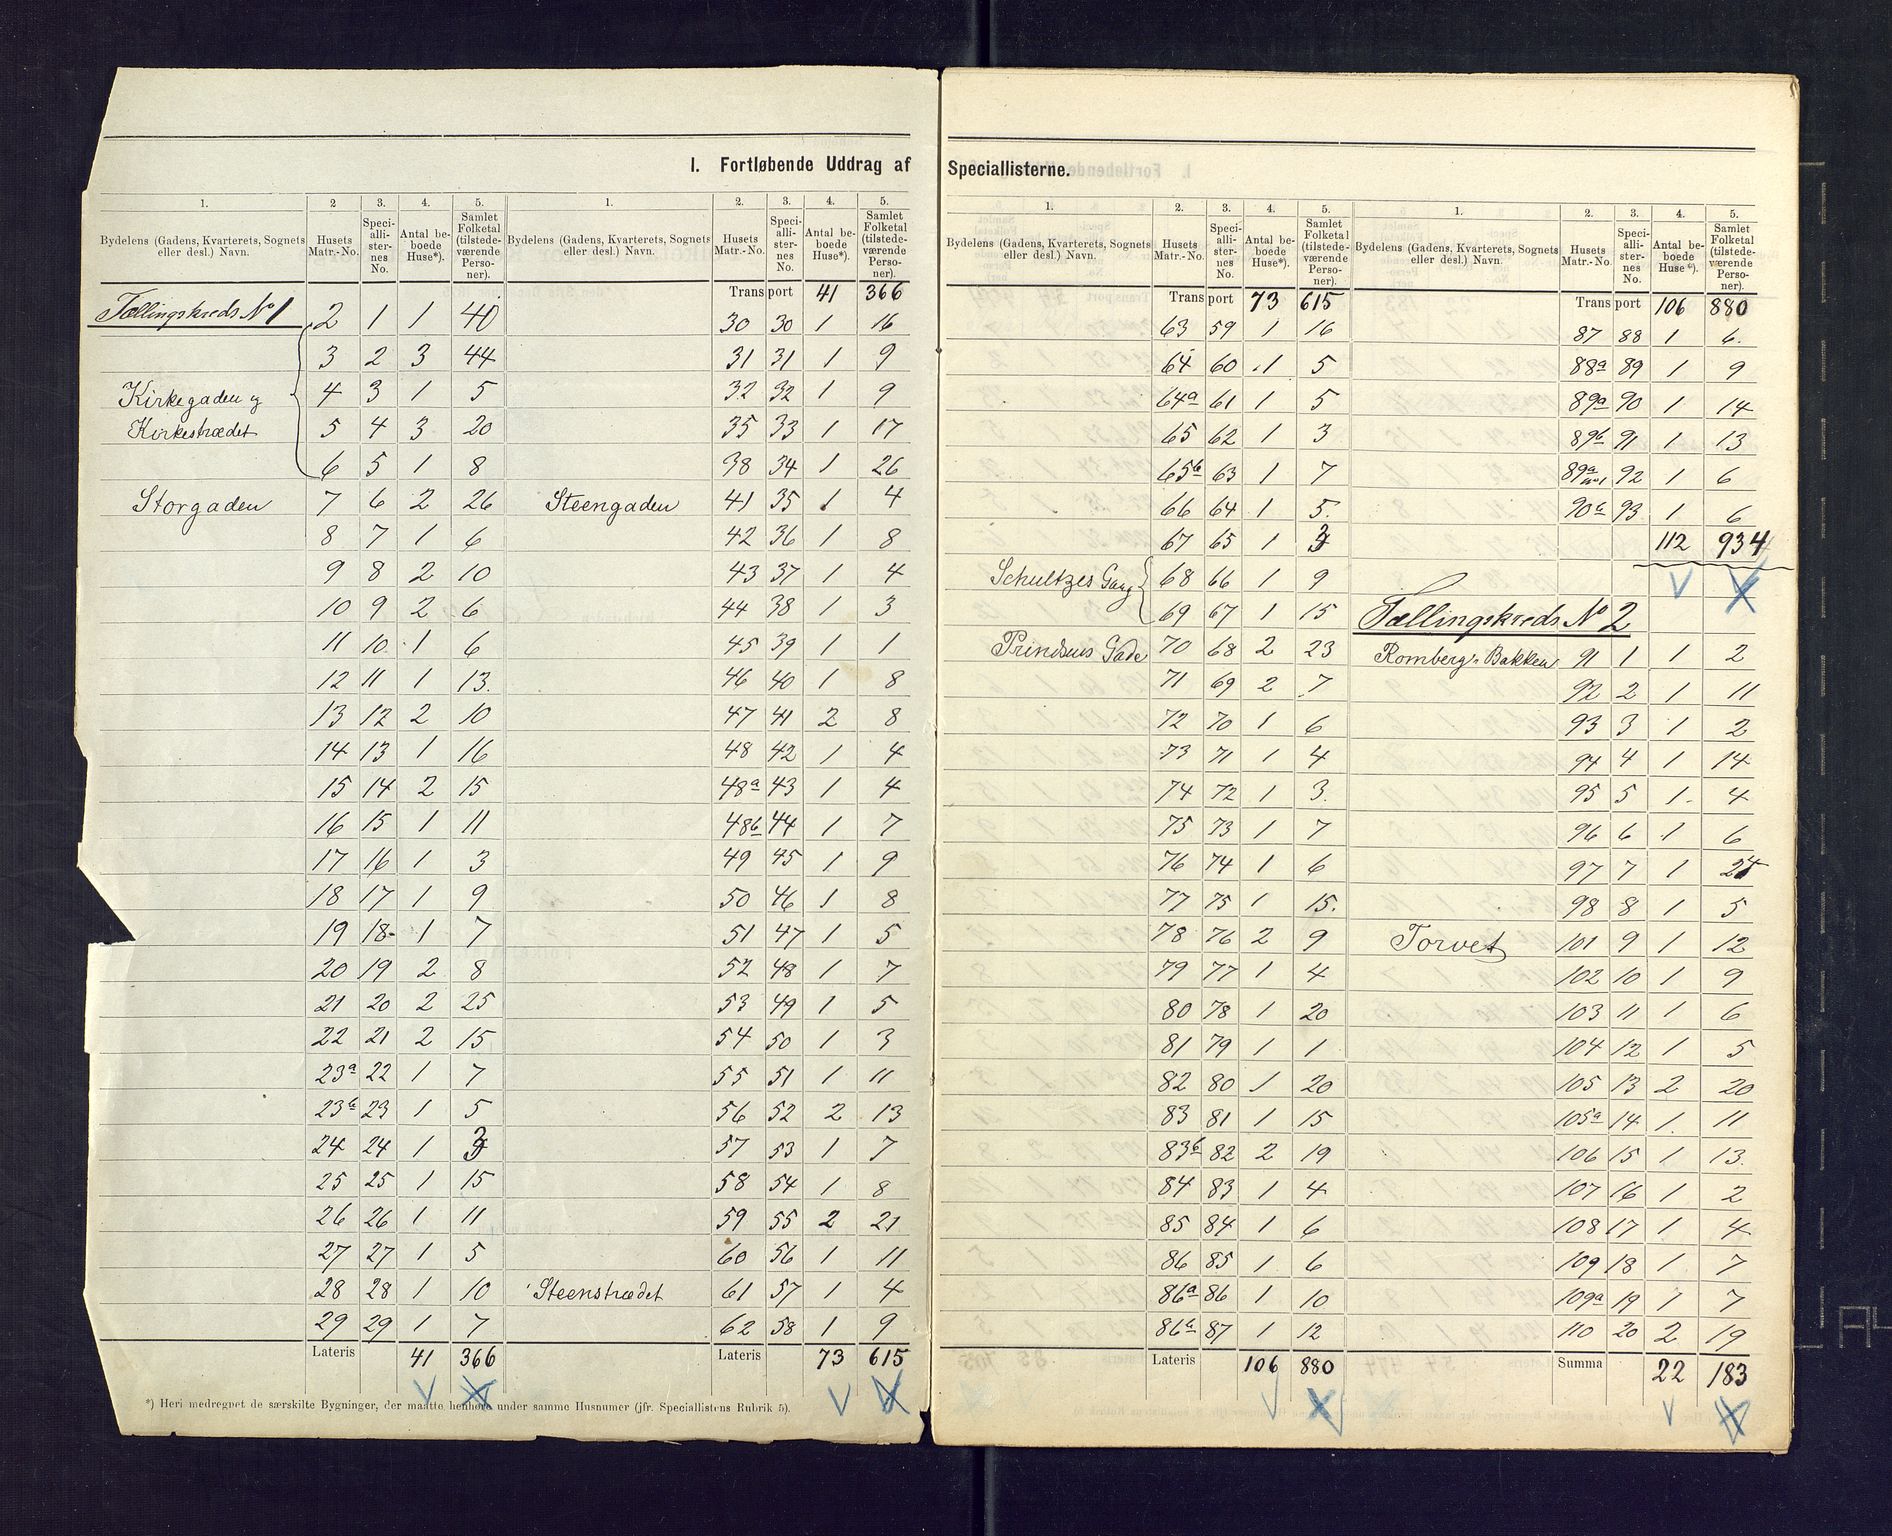 I. Fortløbende Uddrag af Speciallisterne.
1. 2 3. 4. 5. 1. 2. 3. 4. 5.
Bydelens (Gadens, Kvarterets, Sognets eller desl.) Navn. Husets Matr.-No. Speciallisternes No. Antal beboede Huse*). Samlet Folketal (tilstedeværende Personer). Bydelens (Gadens, Kvarterets, Sognets eller desl.) Navn. Husets Matr.-No. Speciallisternes No. Antal beboede Huse*). Samlet Folketal (tilstedeværende Personer).
Transport 41 366
Tællingskreds No 1 2 1 1 40
3 2 3 44
Kirkegaden og 4 3 1 5
Kirkestrædet 5 4 3 20
6 5 1 8
Storgaden 7 6 2 26
8 7 1 6
9 8 2 10
10 9 2 6
11 10. 1 6
12 11 1 13.
13 12 2 10
14 13 1 16
15 14 2 15
16 15 1 11
17 16 1 3
18 17 1 9
19 18 1 7
20 19 2 8
21 20 2 25
22 21 2 15
23a 22 1 7
23b 23 1 5
24 24 1 3
25 25 1 15
26 26 1 11
27 27 1 5
28 28 1 10
29 29 1 7
Lateris 41 366
30 30 1 16
31 31 1 9
32 32 1 9
35 33 1 17
38 34 1 26
Steengaden 41 35 1 4
42 36 1 8
43 37 1 4
44 38 1 3
45 39 1 1
46 40 1 8
47 41 2 8
48 42 1 4
48a 43 1 4
48b 44 1 7
49 45 1 9
50 46 1 8
51 47 1 5
52 48 1 7
53 49 1 5
54 50 1 3
55 51 1 11
56 52 2 13
57 53 1 7
58 54 1 8
59 55 2 21
60 56 1 11
Steenstrædet 61 57 1 4
62 58 1 9
Lateris 73 615
*) Heri medregnet de særskilte Bygninger, der maatte henhøre under samme Husnumer (jfr. Speciallistens Rubrik 5).
1. 2. 3. 4. 5. 1. 2. 3. 4. 5.
Bydelens (Gadens, Kvarterets, Sognets eller desl.) Navn. Husets Matr.-No. Speciallisternes No. Antal beboede Huse*). Samlet Folketal (tilstedeværende Personer). Bydelens (Gadens, Kvarterets, Sognets eller desl.) Navn. Husets Matr.-No. Speciallisternes No. Antal beboede Huse*). Samlet Folketal (tilstedeværende Personer).
Transport 73 615
63 59 1 16
64 60 1 5
64a 61 1 5
65 62 1 3
65b 63 1 7
66 64 1 5.
67 65 1 3
Schultzes Gang 68 66 1 9
69 67 1 15
Prindsens Gade 70 68 2 23
71 69 2 7
72 70 1 6
73 71 1 4
74 72 1 3.
75 73 1 7
76 74 1 6
77 75 1 15.
78 76 2 9
79 77 1 4
80 78 1 20
81 79 1 1
82 80 1 20
83 81 1 15
83b 82 2 19
84 83 1 4
85 84 1 6
86 85 1 6
86a 86 1 10
86a 87 1 12
Lateris 106 880
Transport 106 880
87 88 1 6.
88a 89 1 9
89a 90 1 14
89b 91 1 13
89a 92 1 6
90a 93 1 6
112 934
Tællingskreds No 2
Rombergs Bakken 91 1 1 2
92 2 1 11
93 3 1 2
94 4 1 14
95 5 1. 4
96 6 1 6
97 7 1 24
98 8 1 5
Torvet 101 9 1 12
102 10 1 9
103 11 1 6
104 12 1 5
105 13 2 20
105a 14 1. 11
106 15 1 13.
107 16 1 2
108 17 1 4
109 18 1. 7
109a 19 1 7
110 20 2 19
Summa 22 183